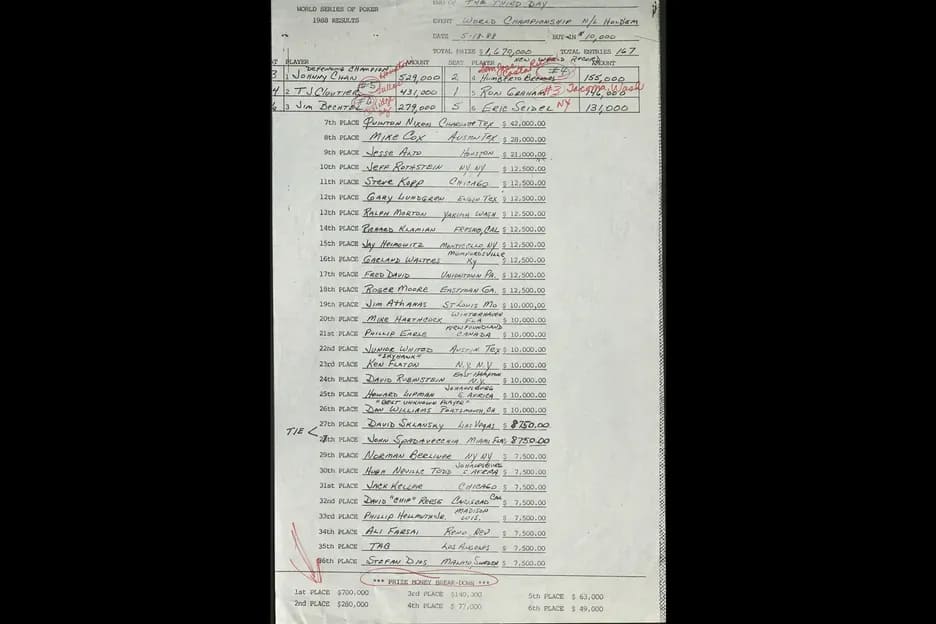 END OF THE THIRD DAY
WORLD SERIES OF POKER
1988 RESULTS
EVENT WORLD CHAMPIONSHIP N/L HOLDEM
DATE 5-18-88 BUY-IN $10,000
TOTAL PRIZE $1,670,000 TOTAL ENTRIES 167
NEW WORLD RECORD
PLAYER AMOUNT SEAT PLAYER AMOUNT
DEFENDING CHAMPION
3 1 JOHNNY CHAN 529,000 2 4 HUMBERTO 155,000
Houston San Jose Costa Rica #4
4 2 TJ CLOUTIER 431,000 1 5 RON GRAHAM 146,000
#5 Dallas #3 Tacoma, Wash
6 3 JIM BECHTEL 279,000 5 6 ERIC SEIDEL NY 131,000
#6
7th PLACE QUINTON NIXON CHARLOTTE TEX $ 42,000.00
8th PLACE MIKE COX AUSTIN TEX $ 28,000.00
9th PLACE JESSE ALTO HOUSTON $ 21,000.00
10th PLACE JEFF ROTHSTEIN NY, NY $ 12,500.00
11th PLACE STEVE KOPP CHICAGO $ 12,500.00
12th PLACE GARY LUNDGREN TEX $ 12,500.00
13th PLACE RALPH MORTON YAKIMA WASH. $ 12,500.00
14th PLACE RICHARD KLAMIAN FRESNO, CAL $ 12,500.00
15th PLACE JAY HEIMOWITZ MONTICELLO, NY $ 12,500.00
16th PLACE GARLAND WALTERS MUNFORDSVILLE KY $ 12,500.00
17th PLACE FRED DAVID UNIONTOWN PA. $ 12,500.00
18th PLACE ROGER MOORE EASTMAN GA. $ 12,500.00
19th PLACE JIM ATHANAS ST LOUIS MO $ 10,000.00
20th PLACE MIKE HARTHCOCK WINTERHAVEN FLA $ 10,000.00
21st PLACE PHILLIP EARLE NEWFOUNDLAND CANADA $ 10,000.00
22nd PLACE JUNIOR WHITED AUSTIN TEX $ 10,000.00
"SKYHAWK"
23rd PLACE KEN FLATON N.Y. N.Y $ 10,000.00
24th PLACE DAVID RUBINSTEIN EAST HAMPTON N.Y. $ 10,000.00
25th PLACE HOWARD LIPMAN JOHANNESBURG S. AFRICA $ 10,000.00
"BEST UNKNOWN PLAYER"
26th PLACE DAN WILLIAMS PORTSMOUTH, OH $ 10,000.00
27th PLACE DAVID SKLANSKY LAS VEGAS $ 8750.00
TIE <
27th PLACE JOHN SPADAVECCHIA MIAMI FLA $ 8750.00
29th PLACE NORMAN BERLINER NY NY $ 7,500.00
30th PLACE HUGH NEVILLE TODD JOHANNESBURG S. AFRICA $ 7,500.00
31st PLACE JACK KELLER CHICAGO $ 7,500.00
32nd PLACE DAVID "CHIP" REESE CARLSBAD CAL $ 7,500.00
33rd PLACE PHILLIP HELLMUTH JR. MADISON WIS. $ 7,500.00
34th PLACE ALI FARSAI RENO, NEV $ 7,500.00
35th PLACE TAB LOS ANGELES $ 7,500.00
36th PLACE STEFAN DIOS SWEDEN $ 7,500.00
*** PRIZE MONEY BREAK-DOWN ***
1st PLACE $700,000 3rd PLACE $140,000 5th PLACE $ 63,000
2nd PLACE $280,000 4th PLACE $ 77,000 6th PLACE $ 49,000